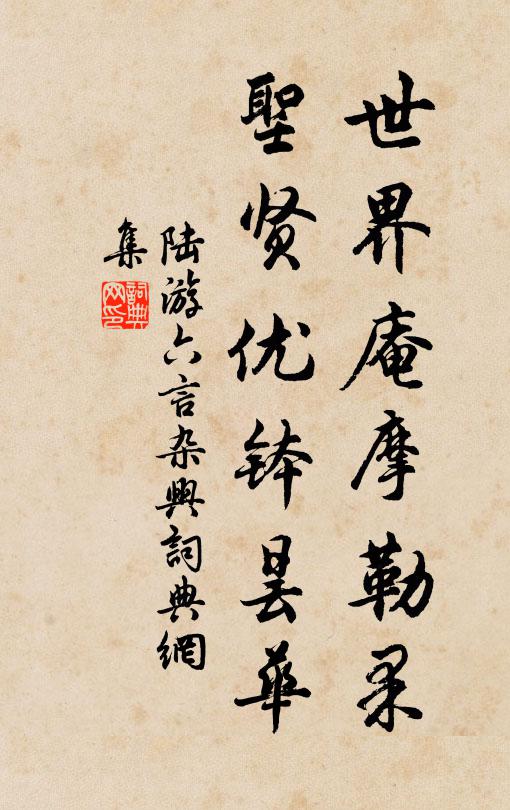 世界庵摩勒果
聖贤优钵昙華
陆游六言杂興詞典網
集
詞典網印